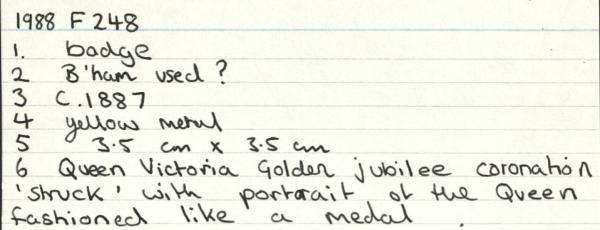 1988 F 248
1. badge
2 B'ham used ?
3 C.1887
4 yellow metal
5 3.5 cm x 3.5 cm
6 Queen Victoria Golden jubilee coronation
'struck' with portrait of the Queen
fashioned like a medal .